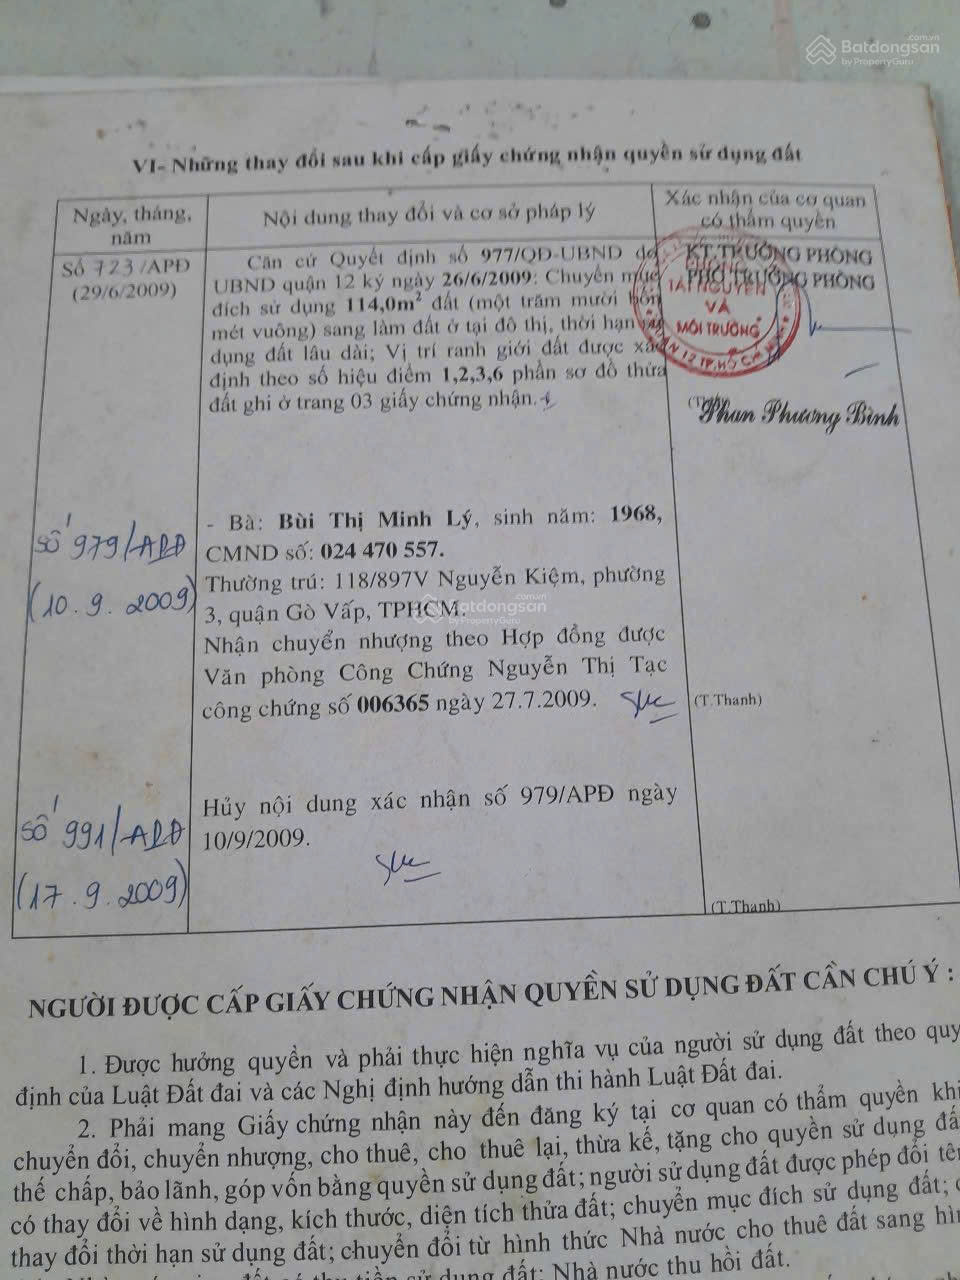 Batdongsan.com.vn
by PropertyGuru
VI- Những thay đổi sau khi cấp giấy chứng nhận quyền sử dụng đất
Ngày, tháng, năm
Nội dung thay đổi và cơ sở pháp lý
Xác nhận của cơ quan có thẩm quyền
Số 723/APĐ
(29/6/2009)
Căn cứ Quyết định số 977/QĐ-UBND do
UBND quận 12 ký ngày 26/6/2009: Chuyển mục
đích sử dụng 114,0m² đất (một trăm mười bốn
mét vuông) sang làm đất ở tại đô thị, thời hạn sử
dụng đất lâu dài; Vị trí ranh giới đất được xác
định theo số hiệu điểm 1,2,3,6 phần sơ đồ thửa
đất ghi ở trang 03 giấy chứng nhận.
KT.TRƯỞNG PHÒNG
PHÓ TRƯỞNG PHÒNG
TÀI NGUYÊN
VÀ
MÔI TRƯỜNG
QUẬN 12 TP.HỒ CHÍ MINH
Phan Phương Bình
Số 979/APĐ
(10.9.2009)
- Bà: Bùi Thị Minh Lý, sinh năm: 1968,
CMND số: 024 470 557.
Thường trú: 118/897V Nguyễn Kiệm, phường
3, quận Gò Vấp, TPHCM.
Batdongsan.com.vn
by PropertyGuru
Nhận chuyển nhượng theo Hợp đồng được
Văn phòng Công Chứng Nguyễn Thị Tạc
công chứng số 006365 ngày 27.7.2009.
(T.Thanh)
Số 991/APĐ
(17.9.2009)
Hủy nội dung xác nhận số 979/APĐ ngày
10/9/2009.
(T.Thanh)
NGƯỜI ĐƯỢC CẤP GIẤY CHỨNG NHẬN QUYỀN SỬ DỤNG ĐẤT CẦN CHÚ Ý :
1. Được hưởng quyền và phải thực hiện nghĩa vụ của người sử dụng đất theo quy
định của Luật Đất đai và các Nghị định hướng dẫn thi hành Luật Đất đai.
2. Phải mang Giấy chứng nhận này đến đăng ký tại cơ quan có thẩm quyền khi
chuyển đổi, chuyển nhượng, cho thuê, cho thuê lại, thừa kế, tặng cho quyền sử dụng đất
thế chấp, bảo lãnh, góp vốn bằng quyền sử dụng đất; người sử dụng đất được phép đổi tên
có thay đổi về hình dạng, kích thước, diện tích thửa đất; chuyển mục đích sử dụng đất;
thay đổi thời hạn sử dụng đất; chuyển đổi từ hình thức Nhà nước cho thuê đất sang hìn
đất có thu tiền sử dụng đất; Nhà nước thu hồi đất.